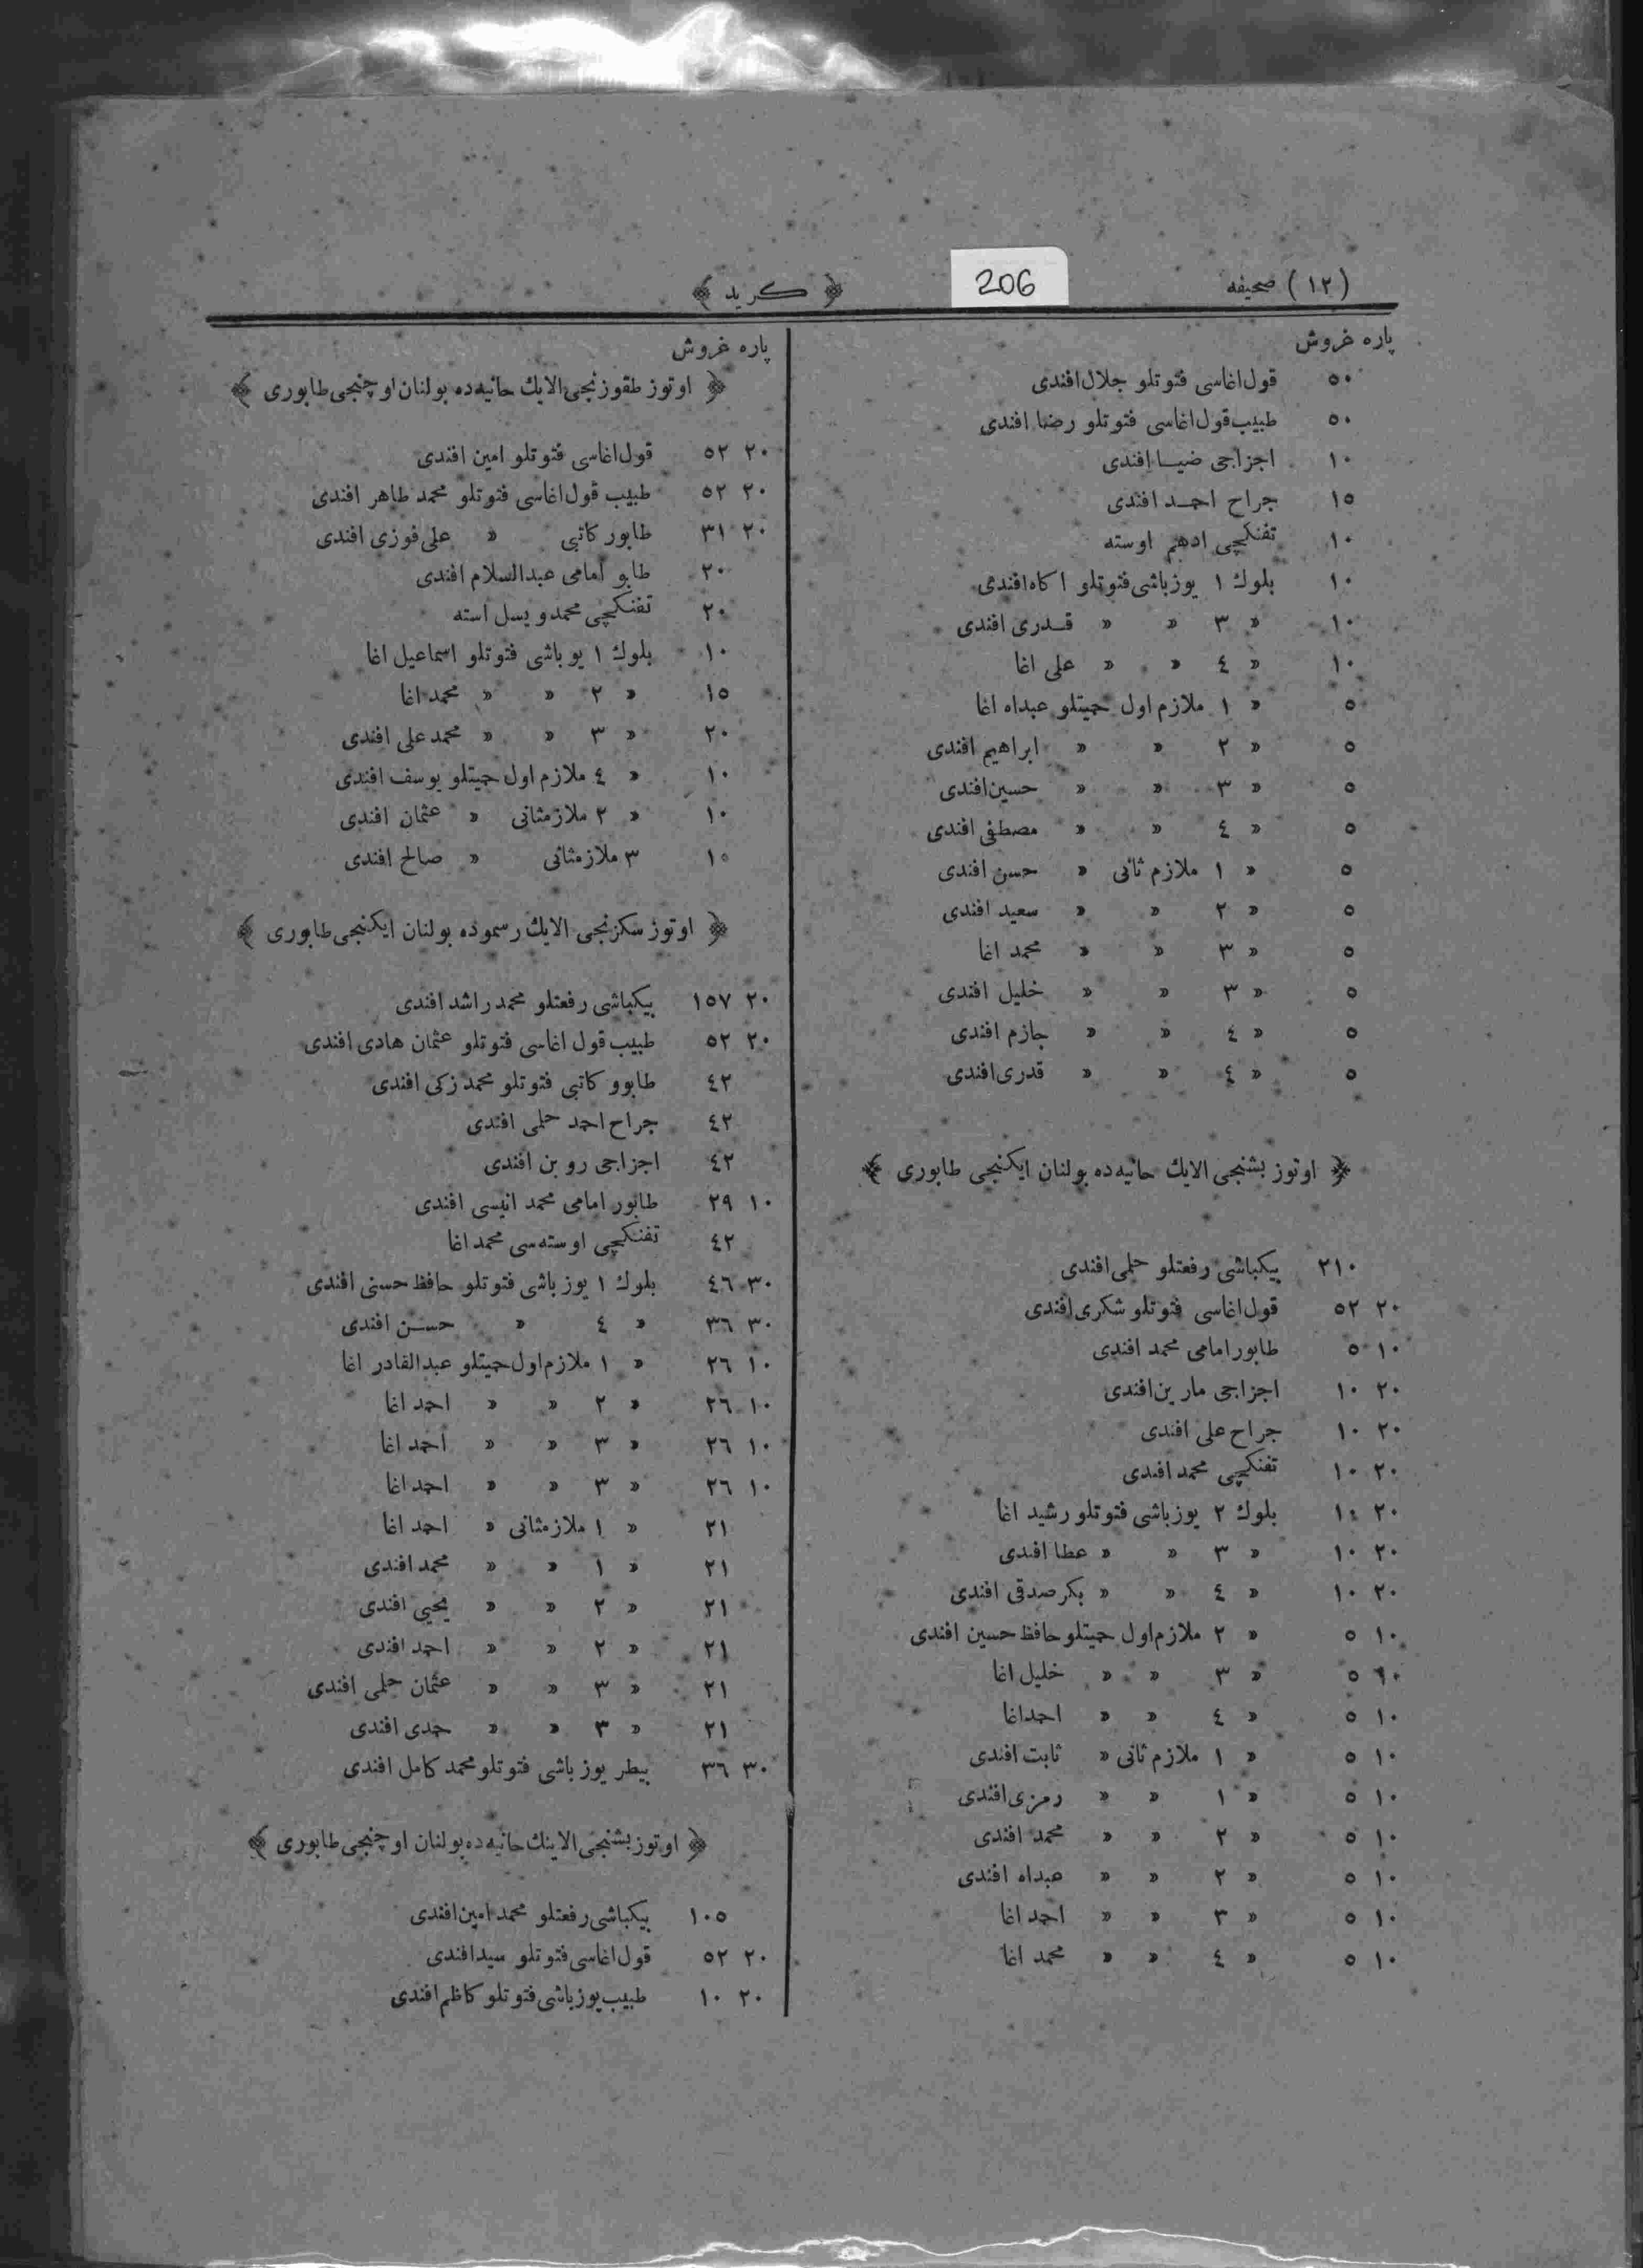 (١٢) صحيفه
206
﴿ كريد ﴾
پاره غروش
٥٠ قول اغاسى فتوتلو جلال افندى
٥٠ طبيب قول اغاسى فتوتلو رضا افندى
١٠ اجزاجى ضيا افندى
١٥ جراح احمد افندى
١٠ تفنكچى ادهم اوسته
١٠ بلوك ١ يوزباشى فتوتلو اكاه افندى
١٠ » ٣ » » قدرى افندى
١٠ » ٤ » » على اغا
٥ » ١ ملازم اول حميتلو عبداه اغا
٥ » ٢ » » ابراهيم افندى
٥ » ٣ » » حسين افندى
٥ » ٤ » » مصطفى افندى
٥ » ١ ملازم ثانى » حسن افندى
٥ » ٢ » » سعيد افندى
٥ » ٣ » » محمد اغا
٥ » ٣ » » خليل افندى
٥ » ٤ » » جازم افندى
٥ » ٤ » » قدرى افندى
﴿ اوتوز بشنجى الايك حانيه ده بولنان ايكنجى طابورى ﴾
٢١٠ بيكباشى رفعتلو حلمى افندى
٢٠ ٥٢ قول اغاسى فتوتلو شكرى افندى
١٠ ٥ طابور امامى محمد افندى
٢٠ ١٠ اجزاجى مارين افندى
٢٠ ١٠ جراح على افندى
٢٠ ١٠ تفنكچى محمد افندى
٢٠ ١٠ بلوك ٢ يوزباشى فتوتلو رشيد اغا
٢٠ ١٠ » ٣ » » عطا افندى
٢٠ ١٠ » ٤ » » بكر صدقى افندى
١٠ ٥ » ٢ ملازم اول حميتلو حافظ حسين افندى
١٠ ٥ » ٣ » » خليل اغا
١٠ ٥ » ٤ » » احمد اغا
١٠ ٥ » ١ ملازم ثانى » ثابت افندى
١٠ ٥ » ١ » » رمزى افندى
١٠ ٥ » ٢ » » محمد افندى
١٠ ٥ » ٢ » » عبداه افندى
١٠ ٥ » ٣ » » احمد اغا
١٠ ٥ » ٤ » » محمد اغا
پاره غروش
﴿ اوتوز طقوزنجى الايك حانيه ده بولنان اوچنجى طابورى ﴾
٢٠ ٥٢ قول اغاسى فتوتلو امين افندى
٢٠ ٥٢ طبيب قول اغاسى فتوتلو محمد طاهر افندى
٢٠ ٣١ طابور كاتبى » على فوزى افندى
٢٠ طابو امامى عبدالسلام افندى
٢٠ تفنكچى محمد ويسل استه
١٠ بلوك ١ يو باشى فتوتلو اسماعيل اغا
١٥ » ٢ » » محمد اغا
٢٠ » ٣ » » محمد على افندى
١٠ » ٤ ملازم اول حميتلو يوسف افندى
١٠ » ٢ ملازمثانى » عثمان افندى
١٠ ٣ ملازمثانى » صالح افندى
﴿ اوتوز سكزنجى الايك رسموده بولنان ايكنجى طابورى ﴾
٢٠ ١٥٧ بيكباشى رفعتلو محمد راشد افندى
٢٠ ٥٢ طبيب قول اغاسى فتوتلو عثمان هادى افندى
٤٢ طابوو كاتبى فتوتلو محمد زكى افندى
٤٢ جراح احمد حلمى افندى
٤٢ اجزاجى روبن افندى
١٠ ٢٩ طابور امامى محمد انيسى افندى
٤٢ تفنكچى اوسته سى محمد اغا
٣٠ ٤٦ بلوك ١ يوزباشى فتوتلو حافظ حسنى افندى
٣٠ ٣٦ » ٤ » حسن افندى
١٠ ٢٦ » ١ ملازم اول حميتلو عبدالقادر اغا
١٠ ٢٦ » ٢ » » احمد اغا
١٠ ٢٦ » ٣ » » احمد اغا
١٠ ٢٦ » ٣ » » احمد اغا
٢١ » ١ ملازمثانى » احمد اغا
٢١ » ١ » » محمد افندى
٢١ » ٢ » » يحيى افندى
٢١ » ٢ » » احمد افندى
٢١ » ٣ » » عثمان حلمى افندى
٢١ » ٣ » » حمدى افندى
٣٠ ٣٦ بيطر يوزباشى فتوتلو محمد كامل افندى
﴿ اوتوز بشنجى الاينك حانيه ده بولنان اوچنجى طابورى ﴾
١٠٥ بيكباشى رفعتلو محمد امين افندى
٢٠ ٥٢ قول اغاسى فتوتلو سيد افندى
٢٠ ١٠ طبيب يوزباشى فتوتلو كاظم افندى